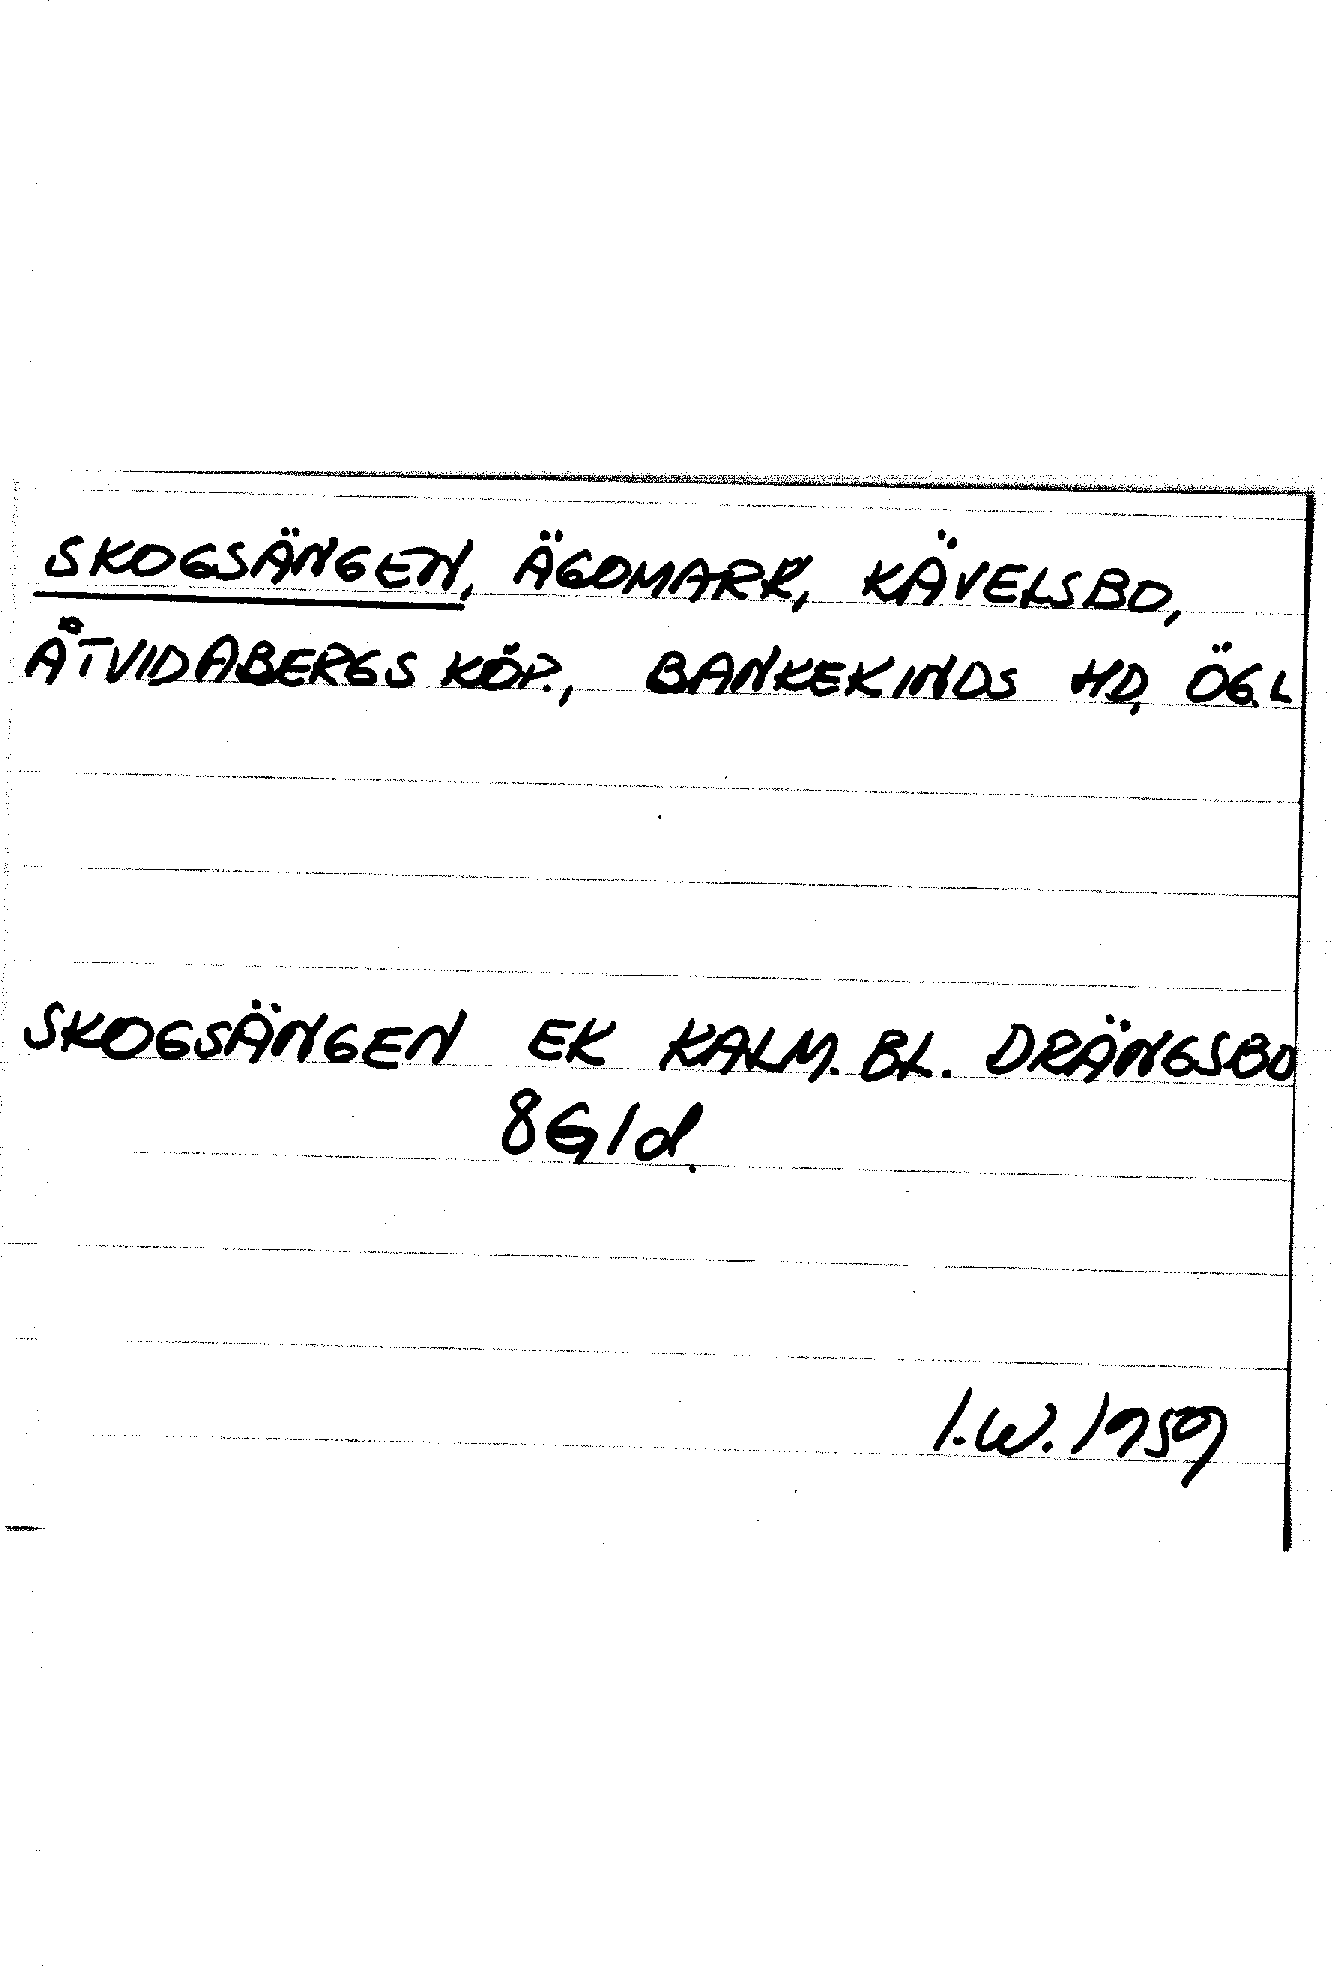 SKOGSÄNGEN, ÄGOMARK, KÄVELSBO,
ÅTVIDABERGS KÖP., BANKEKINDS HD, ÖG.L
SKOGSÄNGEN EK KALM. BL. DRÄNGSBO
8G1d.
I.W. 1959